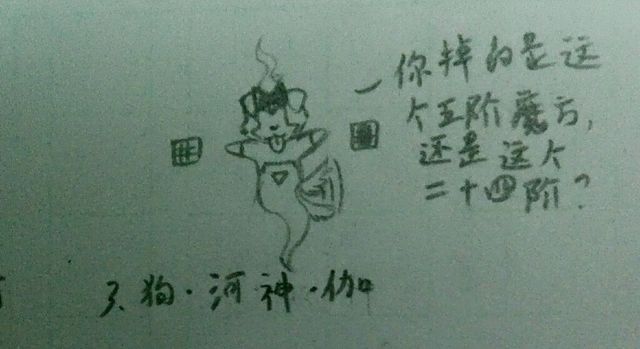 你掉的是这
个五阶魔方，
还是这个
二十四阶？
3、狗·河神·伽